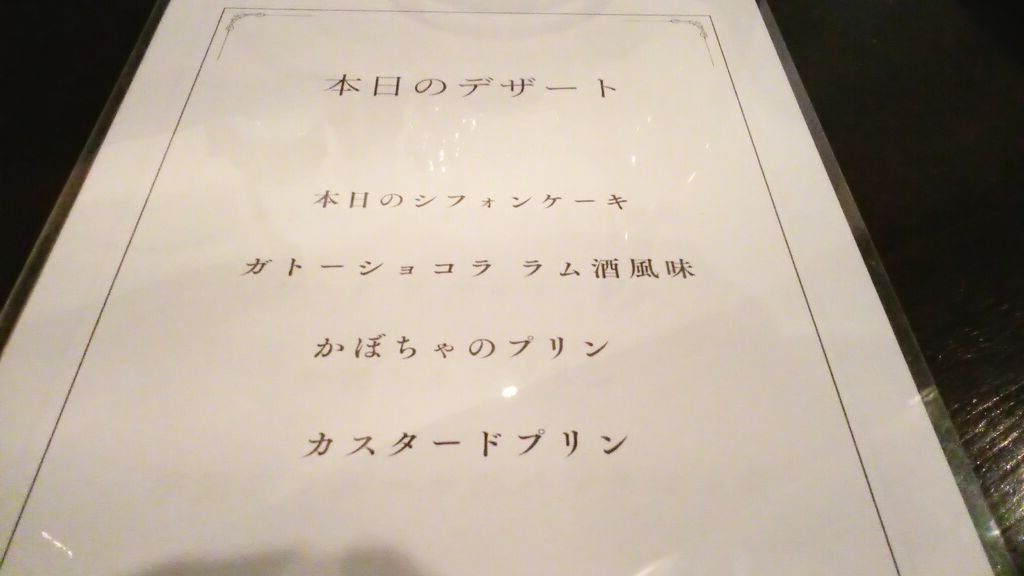 本日のデザート
本日のシフォンケーキ
ガトーショコラ ラム酒風味
かぼちゃのプリン
カスタードプリン